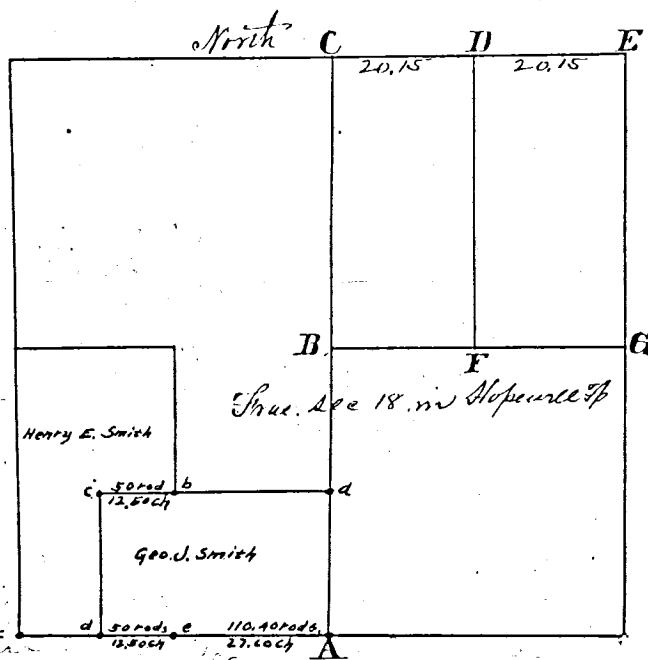 North C D E
20.15 20.15
B F G
Frac. Sec 18 in Hopewell Tp
Henry E. Smith
c 50 rod b d
12.50ch
Geo. J. Smith
d 50 rods e 110.40 rods. A
12.50ch 27.60ch